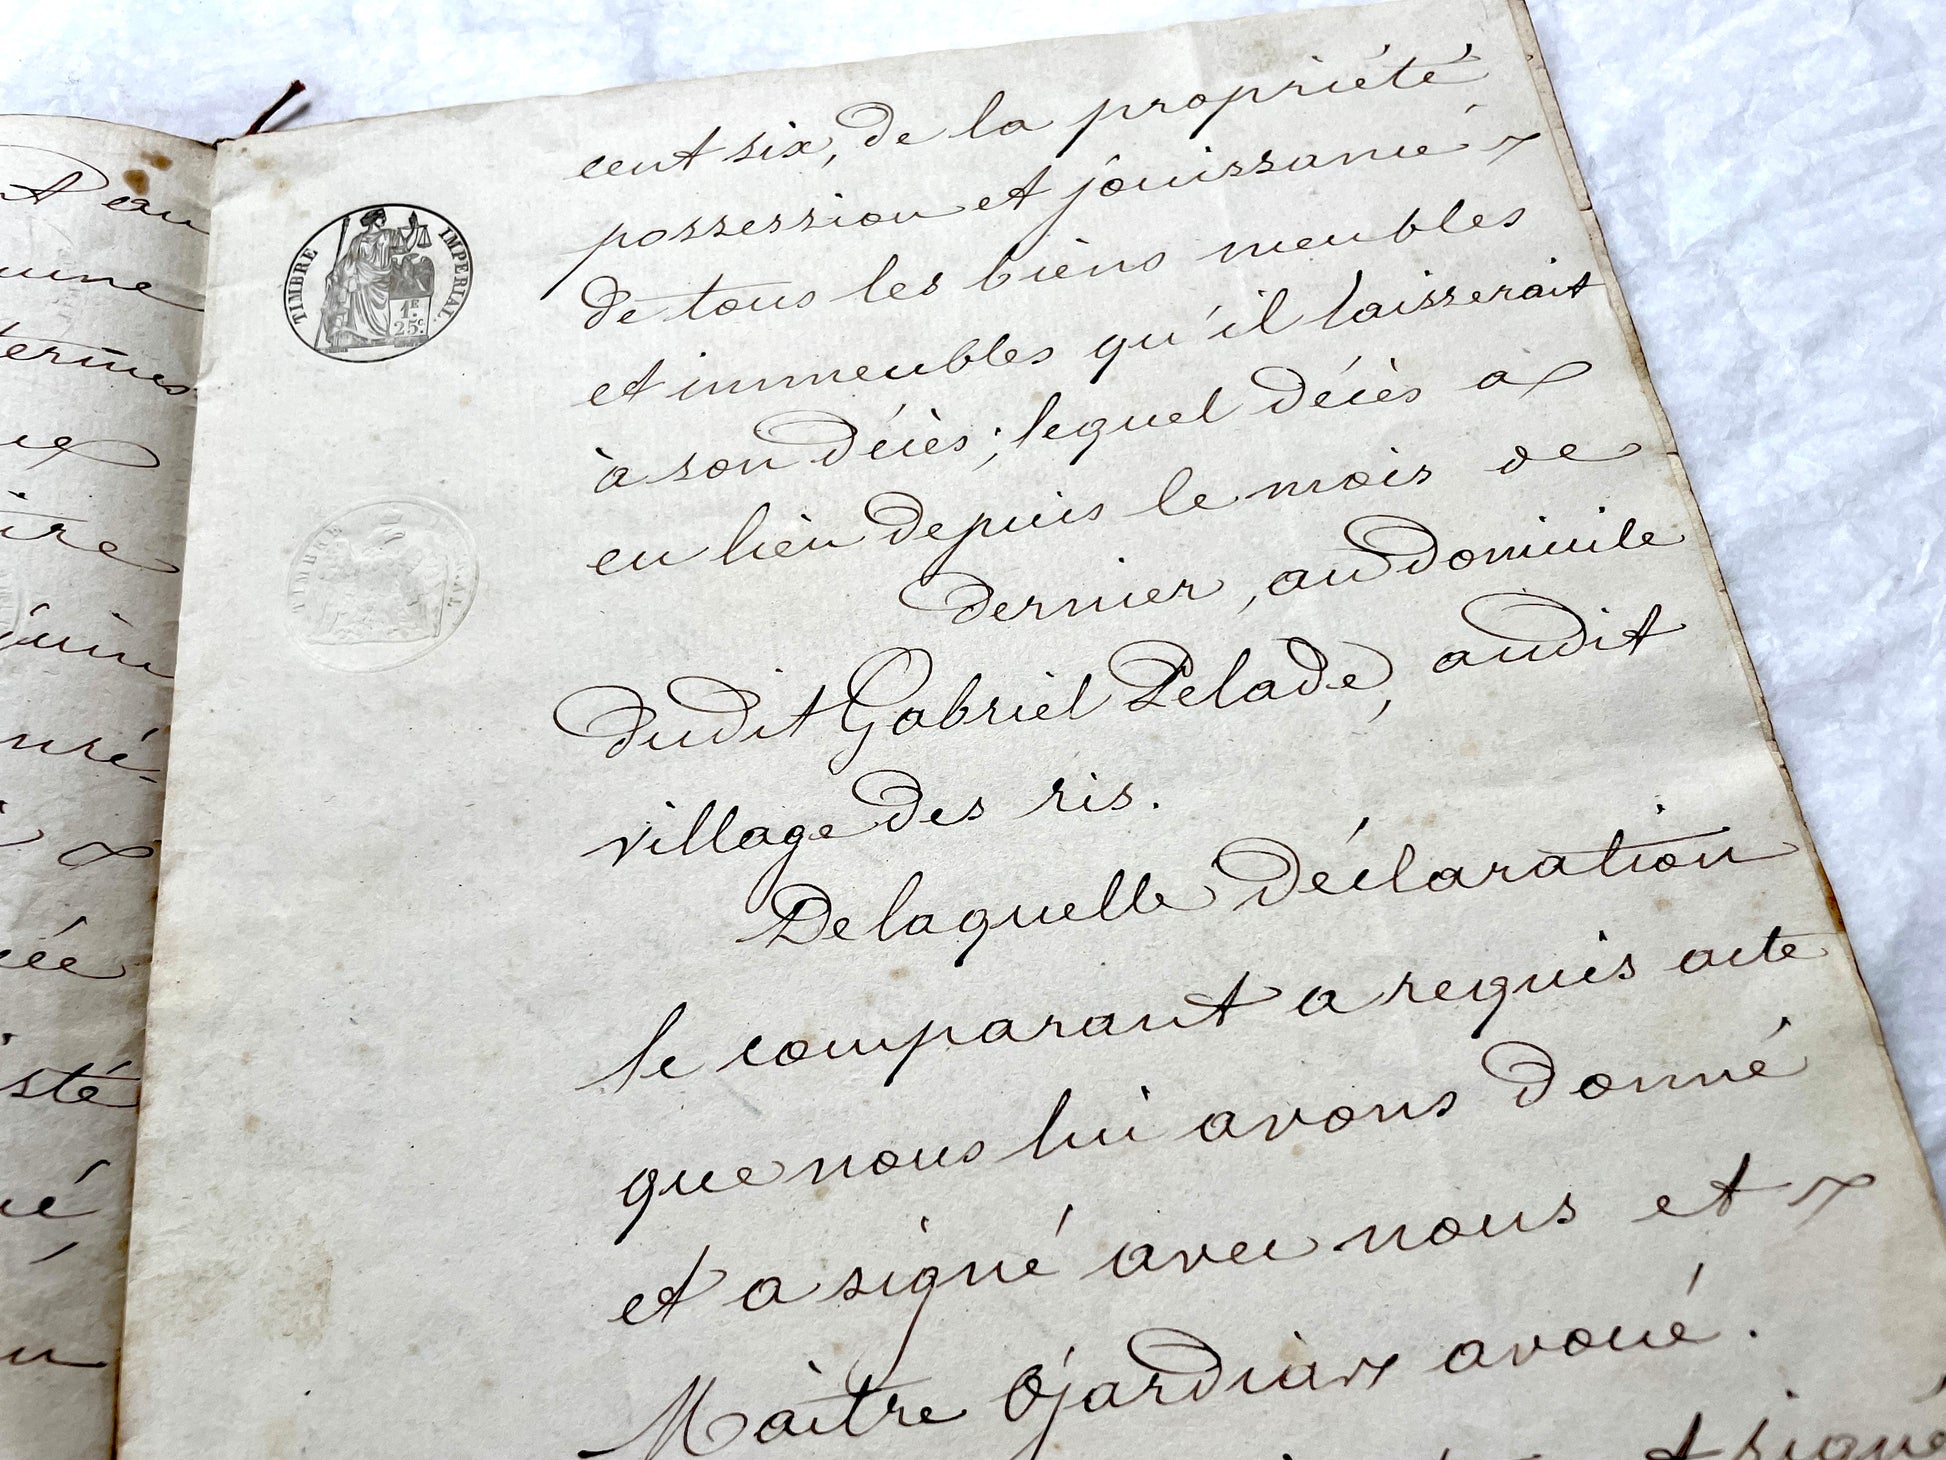 TIMBRE IMPERIAL.
1F.
25c.
TIMBRE
cent six, de la propriété
possession et jouissance
de tous les biens meubles
et immeubles qu'il laisserait
à son décès; lequel décès a
eu lieu depuis le mois de
dernier, au domicile
dudit Gabriel Pelade, audit
village des ris.
De laquelle déclaration
le comparant a requis acte
que nous lui avons donné
et a signé avec nous et
Maître Ojardias avoué.
t signé
eau
une
termes
ire
juin
nré-
ée
sté
é